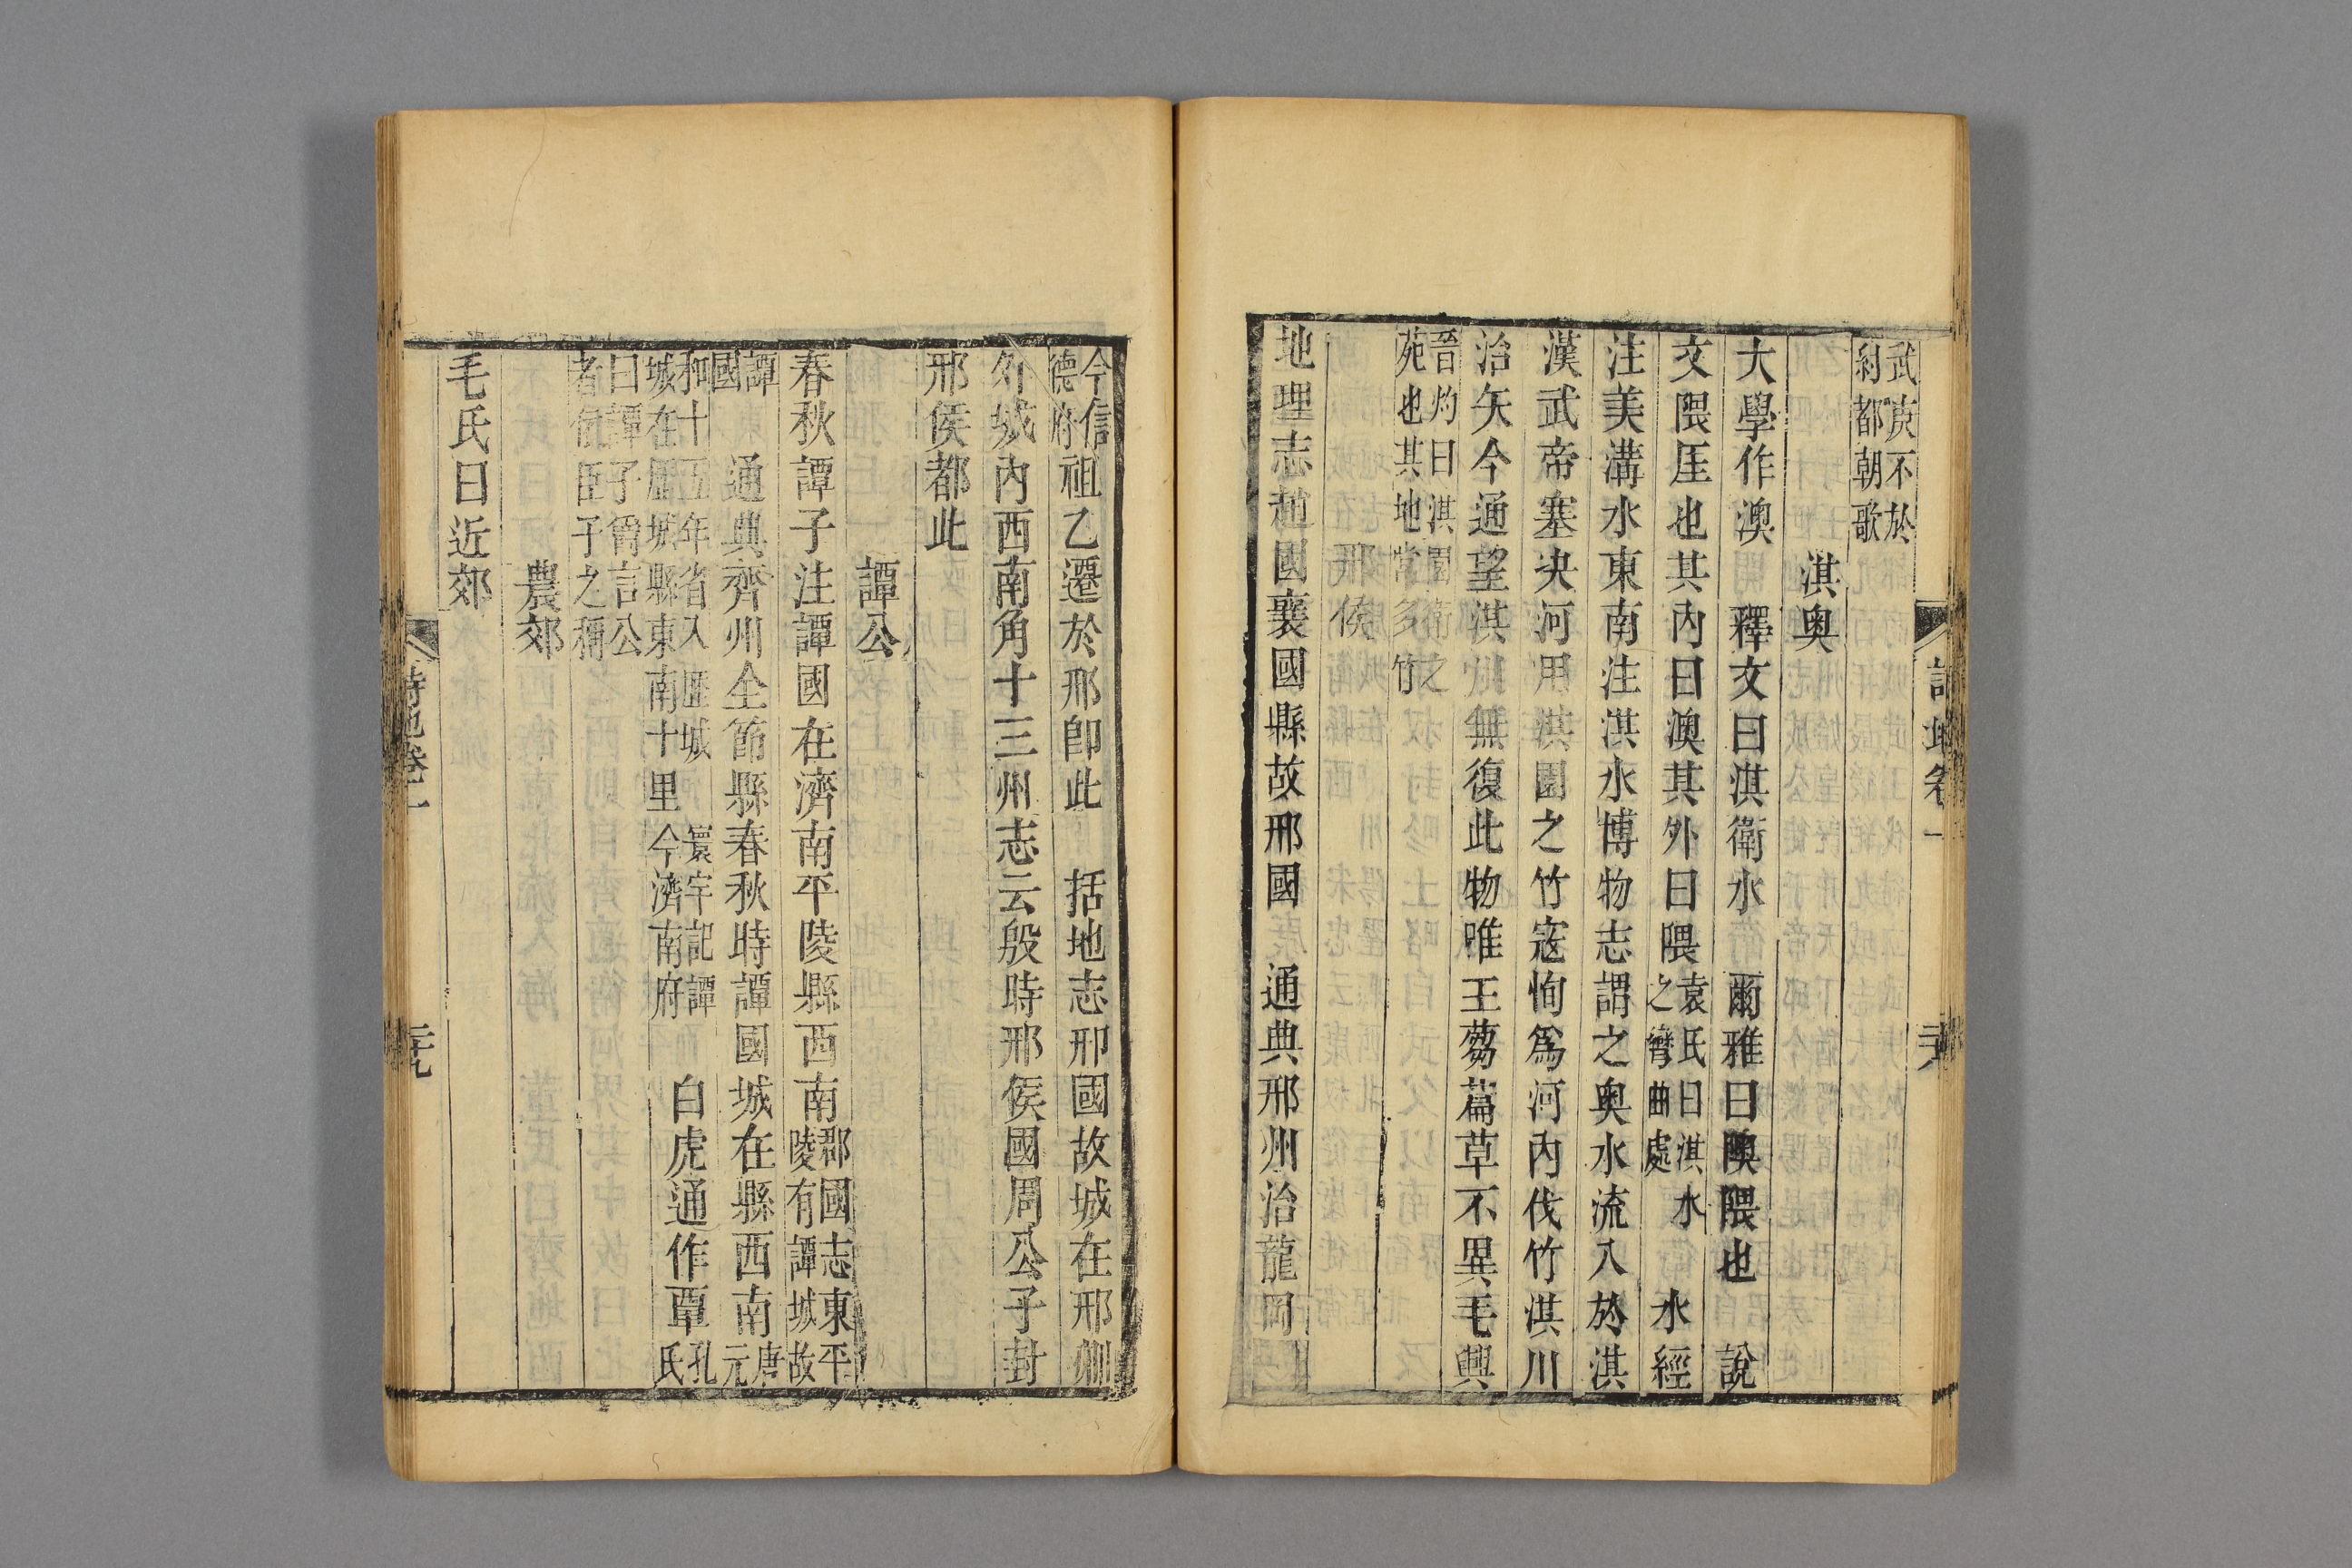 武庚不於
紂都朝歌
淇奧
大學作澳　釋文曰淇衛水　爾雅曰隩隈也　說
文隈厓也其內曰澳其外曰隈
袁氏曰淇水
之彎曲處
水經
注美溝水東南注淇水博物志謂之奥水流入於淇
漢武帝塞决河用淇園之竹寇恂爲河內伐竹淇川
治矢今通望淇川無復此物唯王芻萹草不異毛興
晉灼曰淇園衛之
苑也其地常多竹
邢侯
地理志趙國襄國縣故邢國　通典邢州治龍岡
詩地卷一
今信
德府
祖乙遷於邢卽此　括地志邢國故城在邢州
外城內西南角十三州志云殷時邢侯國周公子封
邢侯都此
譚公
春秋譚子注譚國在濟南平陵縣西南
郡國志東平
陵有譚城故
譚
國
通典齊州全節縣春秋時譚國城在縣西南
唐
元
和十五年省入歷城
城在歷城縣東南十里
寰宇記譚
今濟南府
白虎通作覃
孔
氏
曰譚子爵言公
者臣子之稱
農郊
毛氏曰近郊